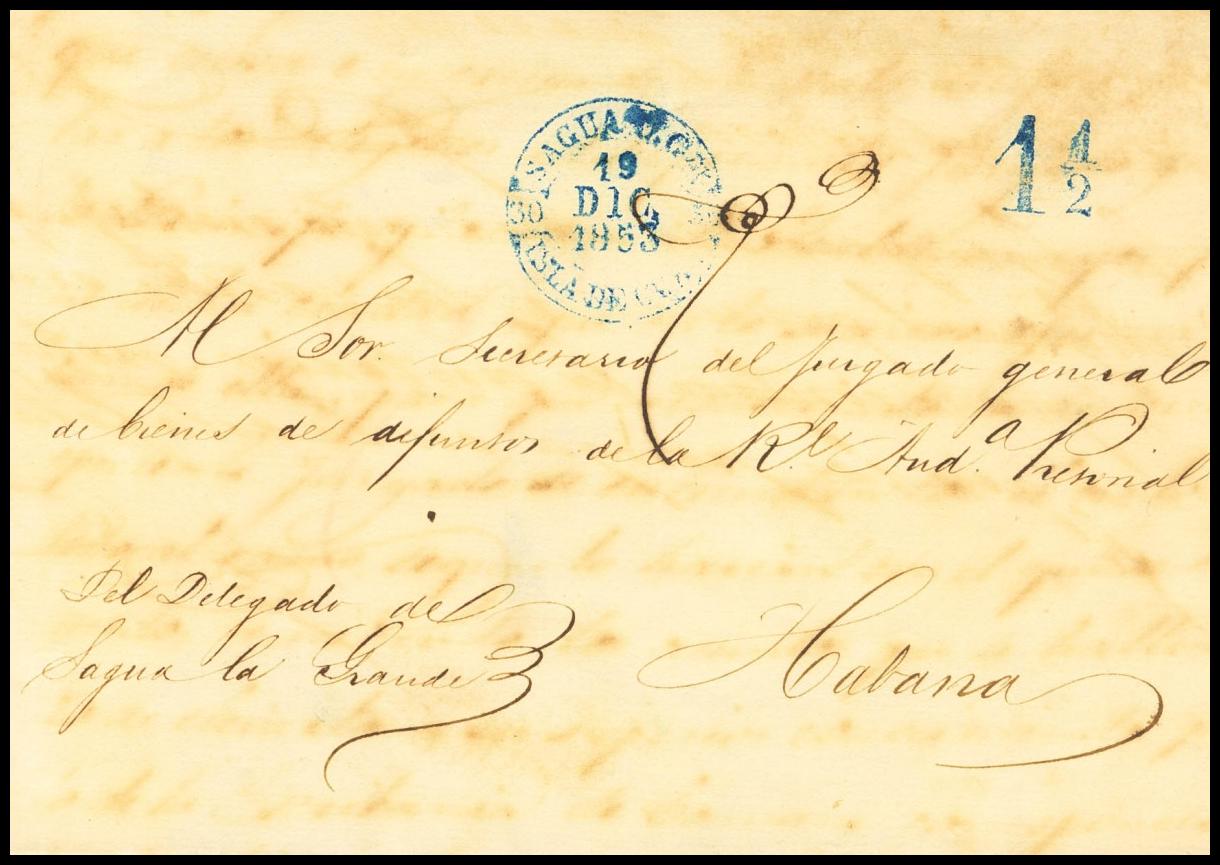 SAGUA
19
DIC
1853
ISLA DE CUBA
1 1/2
Al Sor. Secretario del Jusgado general
de bienes de difuntos de la Rl. Audª. Pretorial
Del Delegado de
Sagua la Grande
Habana